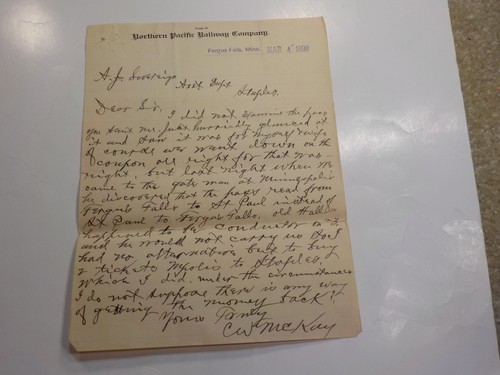 Northern Pacific Railway Company.
Fergus Falls, Minn. MAR 4 1898
A. J. Sovereign
Asst Supt
Staples.
Dear Sir.
I did not examine the pass
you sent me Just hurriedly glanced at
it and saw it was for myself & wife
of course we went down on the
coupon all right for that was
right, but last night when we
came to the gate man at Minneapolis
he discovered that the pass read from
Fergus Falls to St Paul instead of
St Paul to Fergus Falls, old Hall
happened to be conductor on 3
and he would not carry us so I
had no alternative but to buy
2 tickets Mpolis to Staples.
which I did. under the circumstances
I do not suppose there is any way
of getting the money back?
Yours Truly
CW McKay